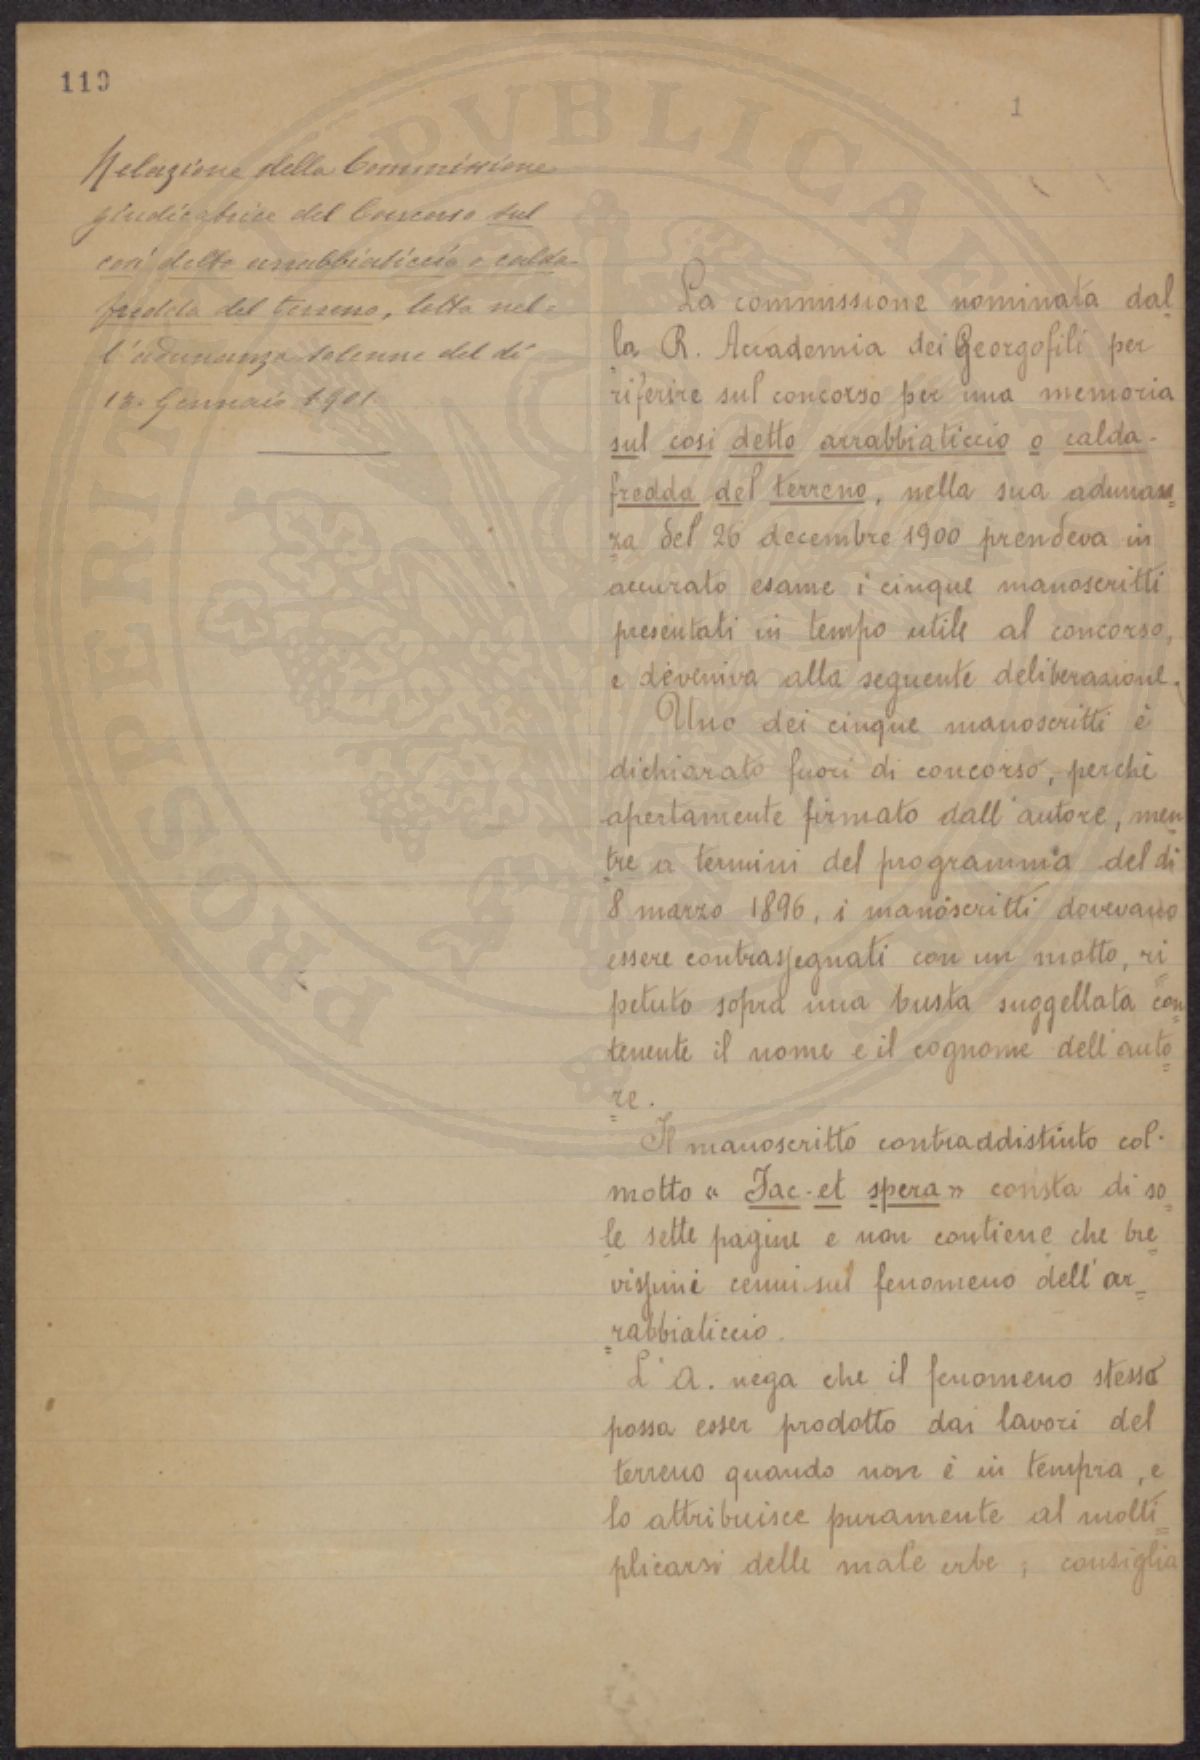 119
1
Relazione della Commissione
giudicatrice del Concorso sul
così detto arrabbiaticcio o calda-
fredda del terreno, letta nel-
l'adunanza solenne del dì
13. Gennaio 1901.
La commissione nominata dal_
la R. Accademia dei Georgofili per
riferire sul concorso per una memoria
sul cosi detto arrabbiaticcio o calda-
fredda del terreno, nella sua adunan=
za del 26 decembre 1900 prendeva in
accurato esame i cinque manoscritti
presentati in tempo utile al concorso,
e deveniva alla seguente deliberazione.
Uno dei cinque manoscritti è
dichiarato fuori di concorso, perchè
apertamente firmato dall'autore, men
tre a termini del programma del dì
8 marzo 1896, i manoscritti dovevano
essere contrassegnati con un motto, ri
petuto sopra una busta suggellata con=
tenente il nome e il cognome dell'auto=
re.
Il manoscritto contraddistinto col
motto « Fac et spera » consta di so_
le sette pagine e non contiene che bre_
vissimi cenni sul fenomeno dell'ar_
rabbiaticcio.
L'A. nega che il fenomeno stesso
possa esser prodotto dai lavori del
terreno quando non è in tempra, e
lo attribuisce puramente al molti=
plicarsi delle male erbe; consiglia
PROSPERITATI PVBLICAE